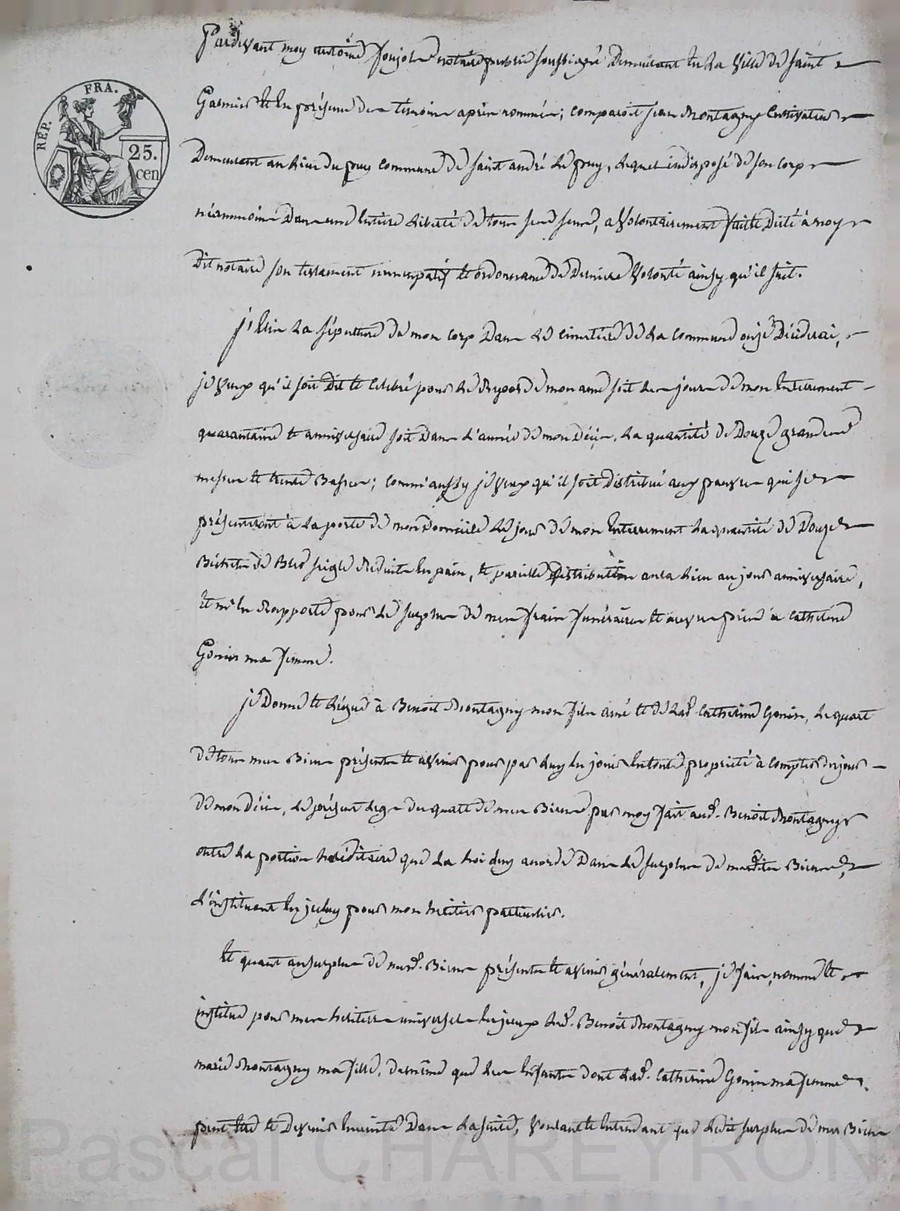 RÉP. FRA.
25.
cen
Pardevant moy antoine foujols notaire public soussigné Demeurant en la Ville de saint
Galmier et en présence des témoins après nommés; comparoit jean Montagny Cultivateur
Demeurant au lieu du fouy commune de saint andré le fouy, lequel indisposé de son corps
néanmoins Dans une entière liberté de tous ses sens, a Volontairement Dicté à moy
Dit notaire son testament nuncupatif et ordonnance de Derniere Volonté ainsy qu'il suit.
j'élis la sépulture de mon corps Dans le cimetière de la commune où je Déciderai,
je veux qu'il soit Dit et Celebré pour le Repos de mon ame soit les jours de mon Enterrement
quarantaine et anniversaire soit Dans l'année de mon Décès, la quantité de Douze grandes
messes et trente Basses; comm'aussy je veux qu'il soit Distribué aux pauvres qui se
présenteront à la porte de mon Domicile le jour de mon Enterrement la quantité de Douze
Bichets de Bled seigle Reduits en pain, et pareille Distribution aura lieu au jour anniversaire,
et m'en Rapporte pour le surplus de mes frais funéraires et œuvres pies à Catherine
Gonin ma femme.
je Donne et Lègue à Benoit Montagny mon fils ainé et de lad.e Catherine Gonin, le quart
de tous mes Biens présents et avenir pour par luy en jouir en toute propriété à compter du jour
de mon Décès, le présent legs du quart de mes Biens par moy fait aud. Benoit Montagny
outre la portion héréditaire que la Loi luy accorde Dans le surplus de mesdits Biens,
l'instituant en iceluy pour mon héritier particulier.
Et quant au surplus de mesd. Biens présents et avenir généralement, je fais, nomme et
institue pour mes heritiers universels en iceux led. Benoit Montagny mon fils ainsy que
marie Montagny ma fille, de même que les Enfants dont lad.e Catherine Gonin ma femme
peut être et Devenir Enceinte Dans la suite, Voulant et Entendant que ledit surplus de mes Biens
Pascal CHAREYRON